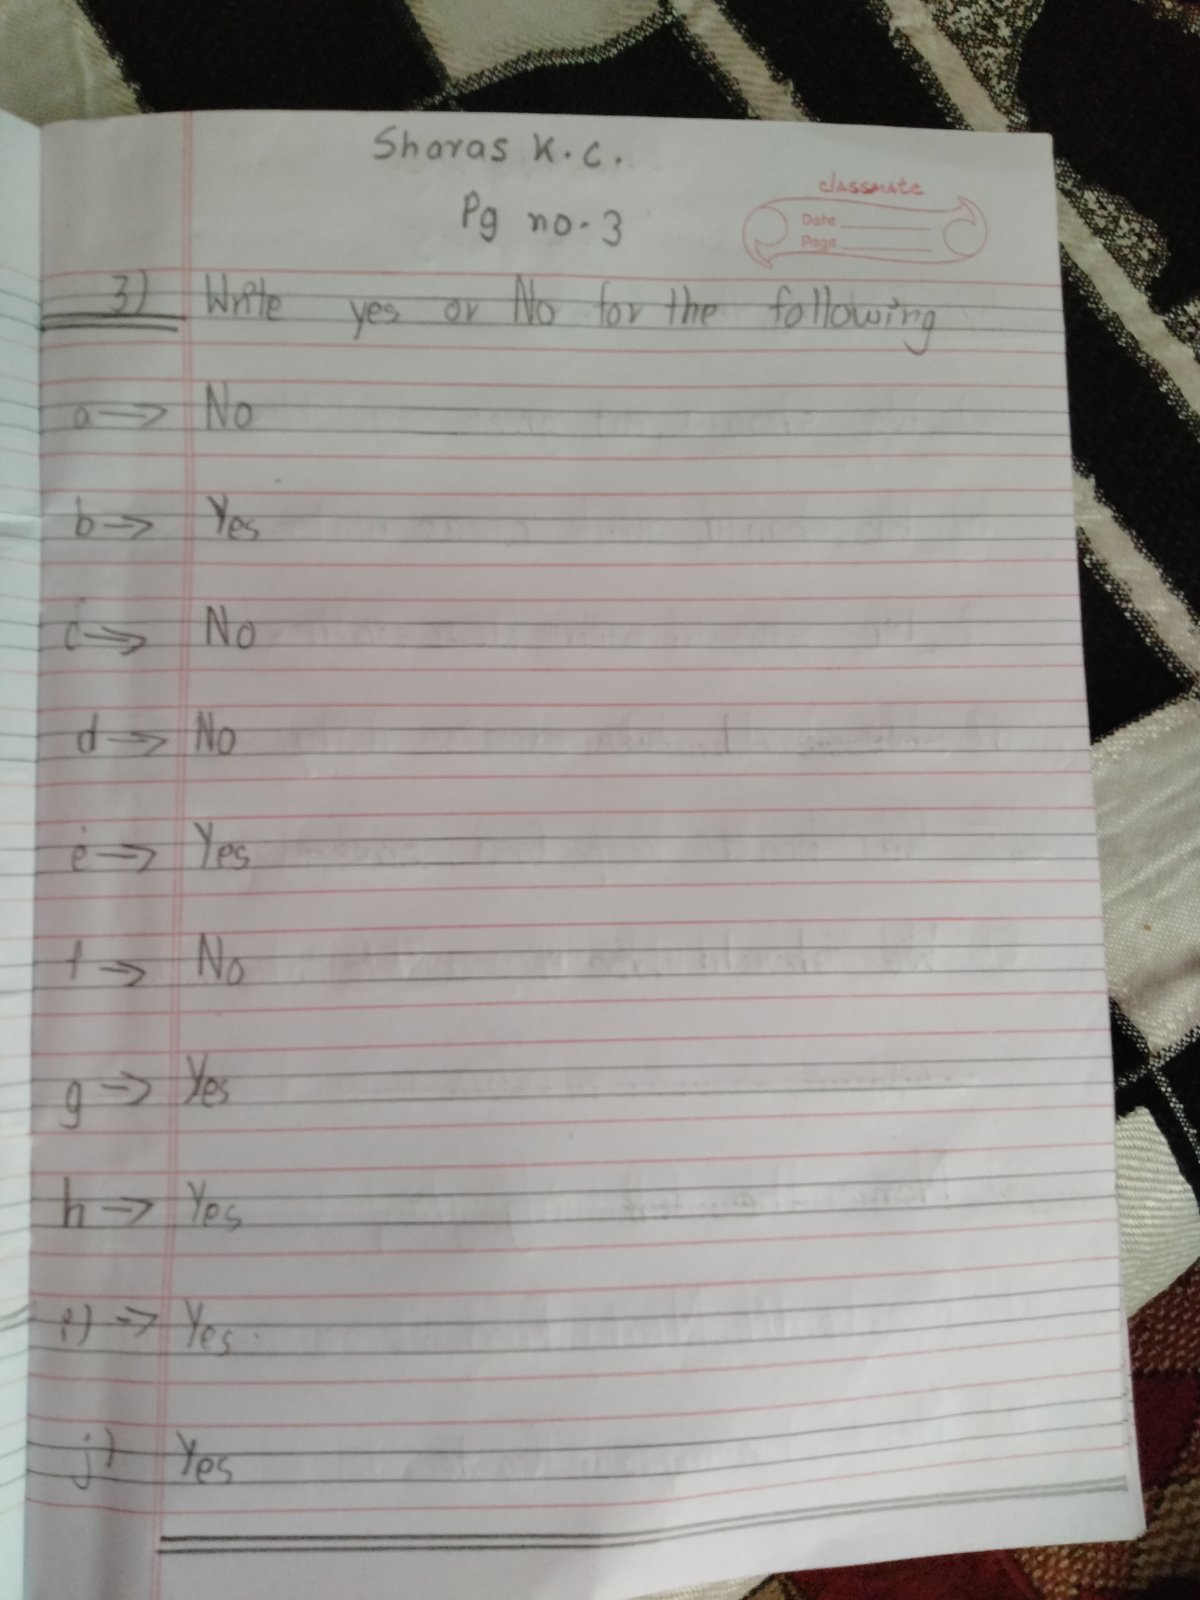 Sharas K.C.
Pg no.3
classmate
Date
Page
3) Write yes or No for the following
a → No
b → Yes
c → No
d → No
e → Yes
f → No
g → Yes
h → Yes
i) → Yes.
j) Yes